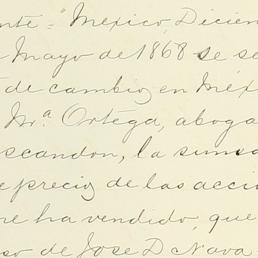 nte." Mexico, Dicien
Mayo de 1868 se se
de cambio, en Méx
Mª Ortega, aboga
scandon, la suma
precio de las accio
ha vendido, que
so de Jose D Nava